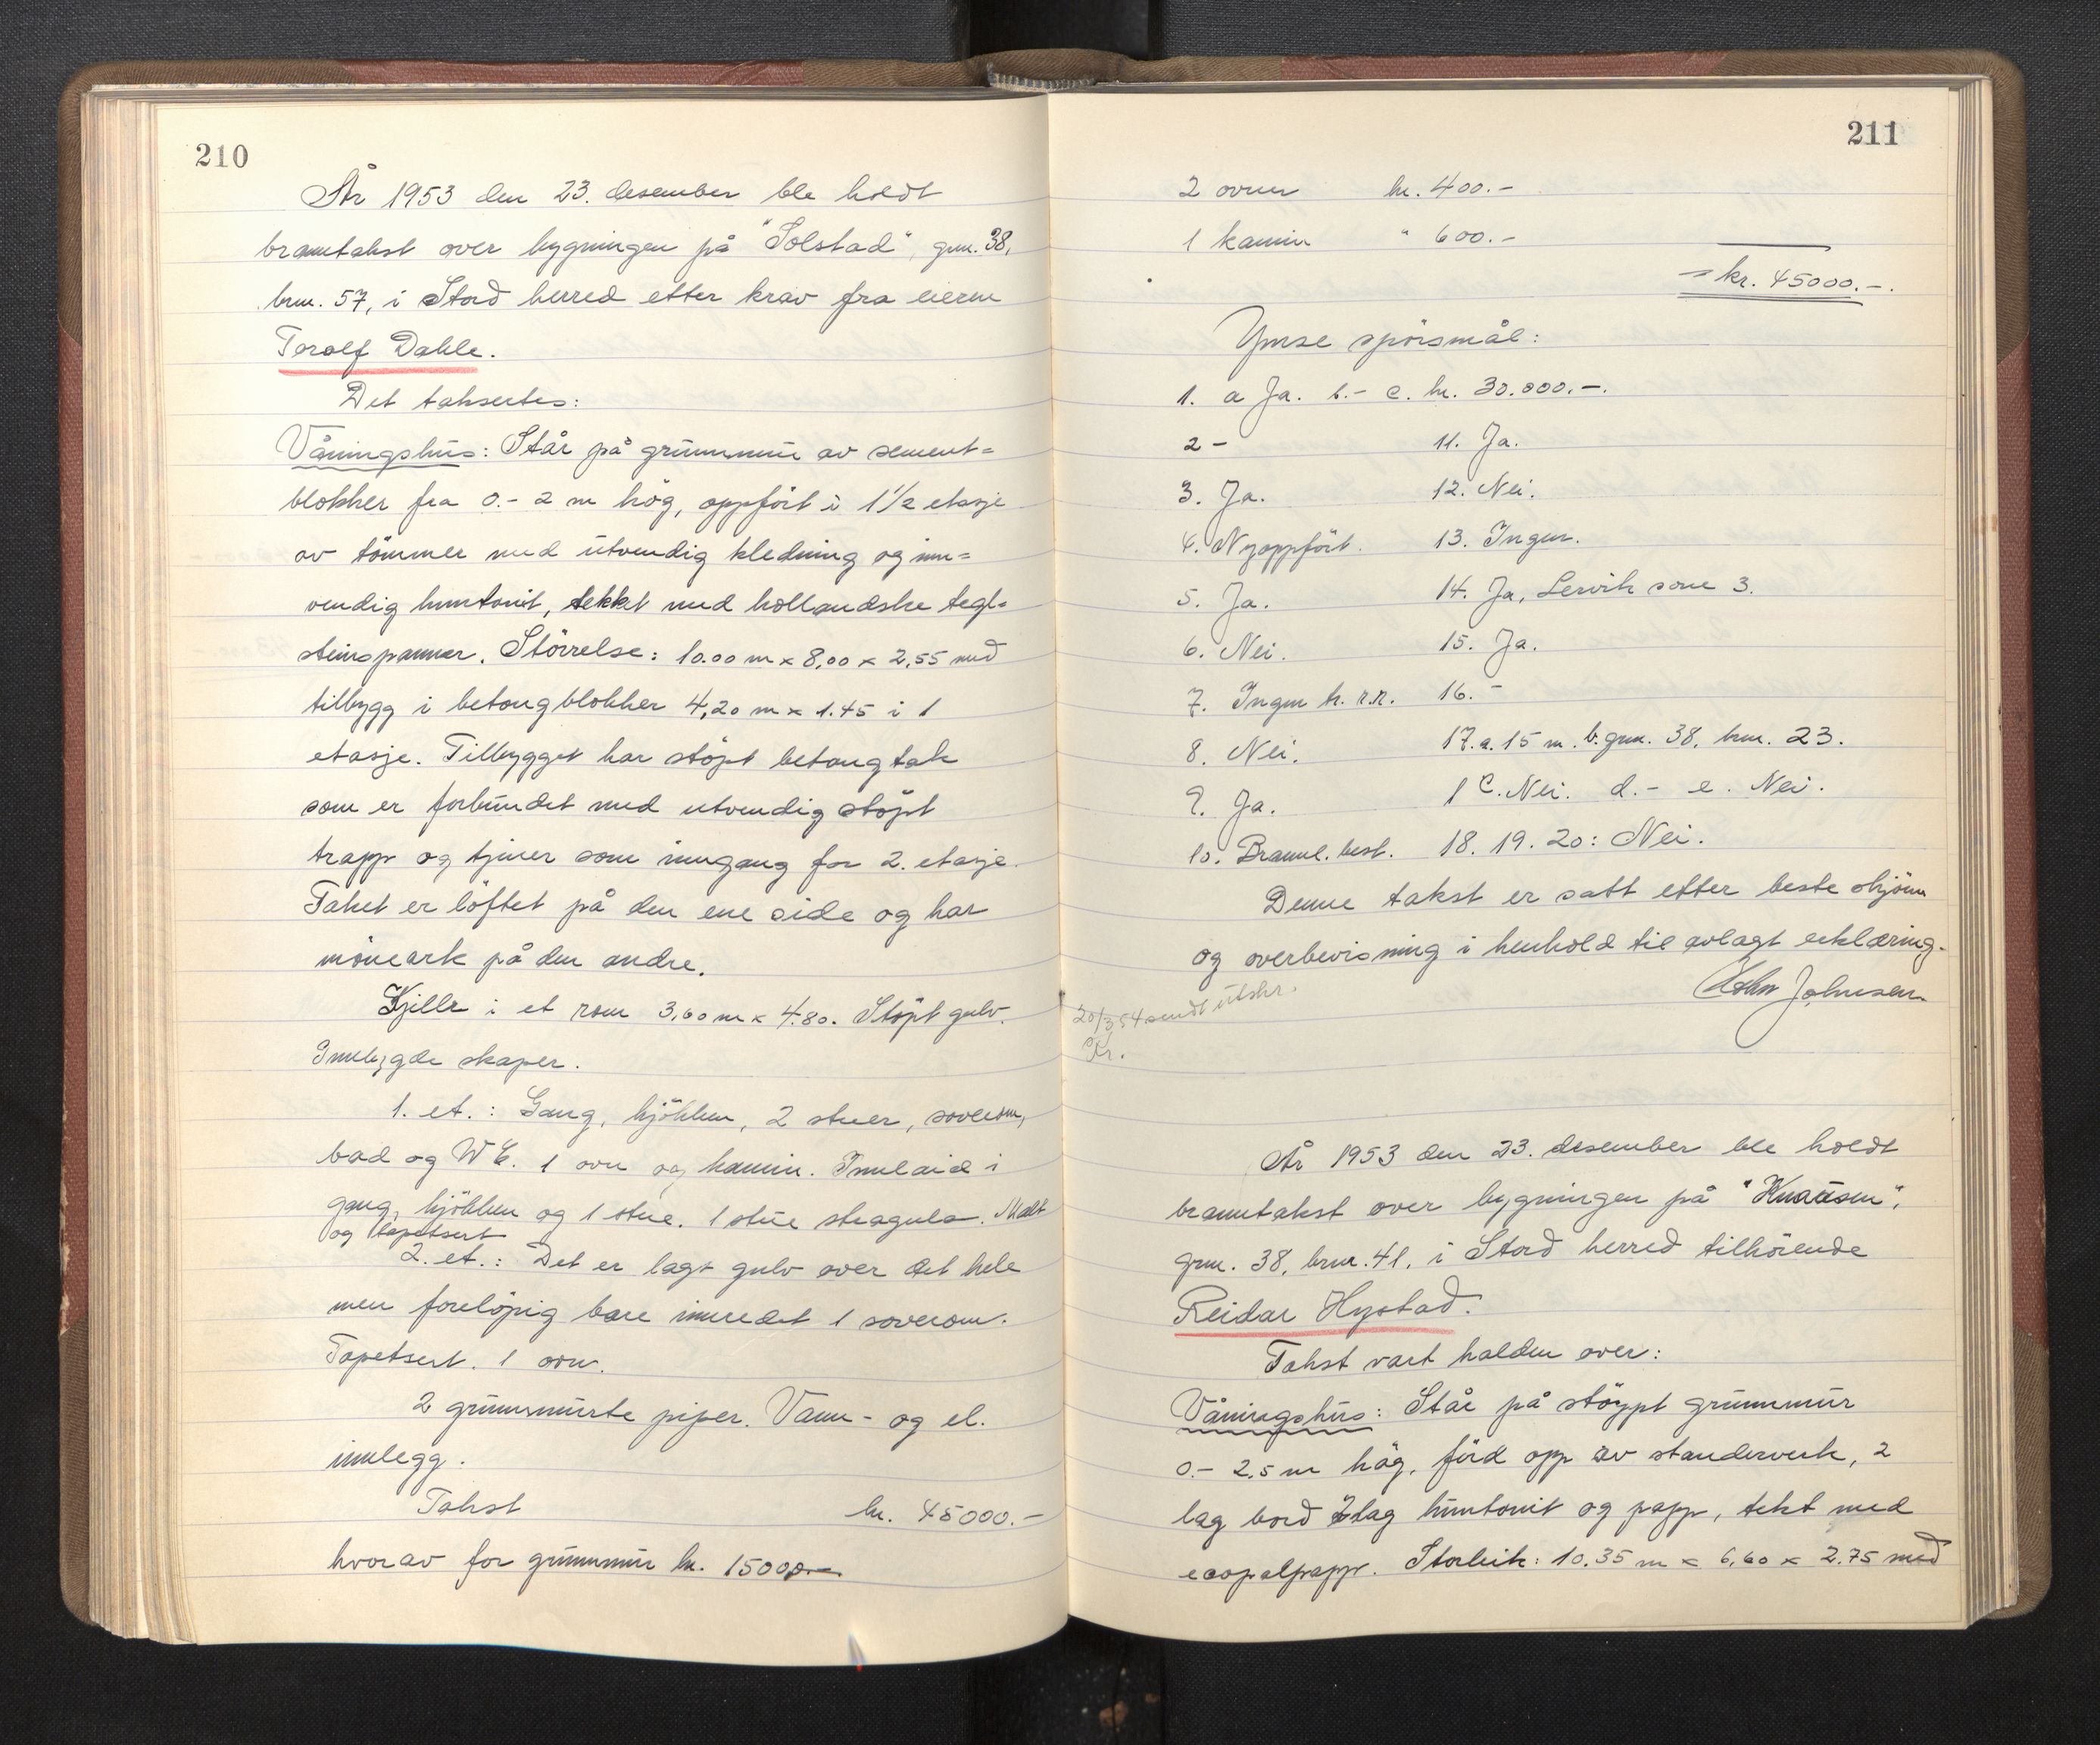 210
År 1953 den 23. desember ble holdt
branntakst over bygningen på "Solstad", gnr. 38,
brnr. 57, i Stord herred etter krav fra eieren
Torolf Dahle.
Det taksertes:
Våningshus: Står på grunnmur av sement=
blokker fra 0.- 2 m høg, oppført i 1 1/2 etasje
av tømmer med utvendig kledning og inn=
vendig huntonit, tekket med hollandske tegl=
steinspanner. Størrelse: 10.00 m x 8,00 x 2,55 med
tilbygg i betongblokker 4,20 m x 1.45 i 1
etasje. Tilbygget har støpt betongtak
som er forbundet med utvendig støpt
trapp og tjener som inngang for 2. etasje.
Taket er løftet på den ene side og har
møneark på den andre.
Kjeller i et rom 3,60 m x 4.80. Støpt gulv.
Innbygde skaper.
1. et.: Gang, kjøkken, 2 stuer, soverom,
bad og WC. 1 ovn og kamin. Innlaid i
gang, kjøkken og 1 stue. 1 stue stragula. Malt
og tapetsert
2. et.: Det er lagt gulv over det hele
men foreløpig bare innredet 1 soverom.
Tapetsert. 1 ovn.
2 grunnmurte piper. Vann- og el.
innlegg.
Takst kr. 45000.-
hvorav for grunnmur kr. 15000.-
211
2 ovner kr. 400.-
1 kamin " 600.-
= kr. 45000.-.
Ymse spørsmål:
1. a Ja. b.- c. kr. 30.000.-.
2 - 11. Ja.
3. Ja. 12. Nei.
4. Nyoppført. 13. Ingen.
5. Ja. 14. Ja, Lervik sone 3.
6. Nei. 15. Ja.
7. Ingen k. r.r. 16. -
8. Nei. 17. a. 15 m. b. gnr. 38, brnr. 23.
9. Ja. 1 c. Nei. d.- e. Nei.
10. Brannl. best. 18. 19. 20: Nei.
Denne takst er satt etter beste skjønn
og overbevisning i henhold til avlagt erklæring.
Johnsen.
20/3 54 sendt utskr.
Kr.
År 1953 den 23. desember ble holdt
branntakst over bygningen på "Knausen",
gnr. 38, brnr. 41, i Stord herred tilhørende
Reidar Hystad.
Takst vart halden over:
Våningshus: Står på støypt grunnmur
0.- 2.5 m høg, förd opp av standerverk, 2
lag bord 2 lag huntonit og papp, tekt med
ecopalpapp. Storleik: 10.35 m x 6,60 x 2.75 med